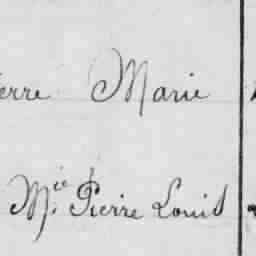 erre Marie
Mie Pierre Louis